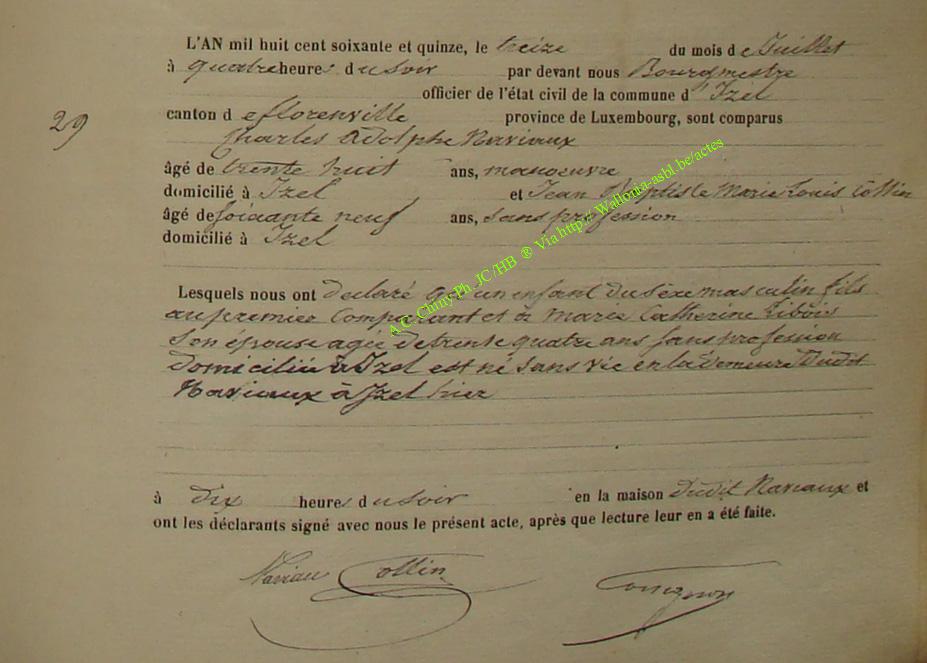 L'AN mil huit cent soixante et quinze, le treize du mois de Juillet
à quatre heures du Soir par devant nous Bourgmestre
officier de l'état civil de la commune d'Izel
29
canton de florenville province de Luxembourg, sont comparus
Charles Adolphe Naviaux
âgé de trente huit ans, manoeuvre
domicilié à Izel et Jean Bptiste Marie Louis Collin
âgé de soixante neuf ans, sans profession
domicilié à Izel
A.C. Chiny Ph. JC/HB ® Via http://Wallonia-asbl.be/actes
Lesquels nous ont declaré qu'un enfant du sèxe masculin fils
au premier Comparant et à Marie Catherine
Son épouse agée de trente quatre ans sans profession
domiciliée à Izel est né sans vie en la demeure dudit
Naviaux à Izel hier
à dix heures du Soir en la maison dudit Naviaux et
ont les déclarants signé avec nous le présent acte, après que lecture leur en a été faite.
Naviau Collin